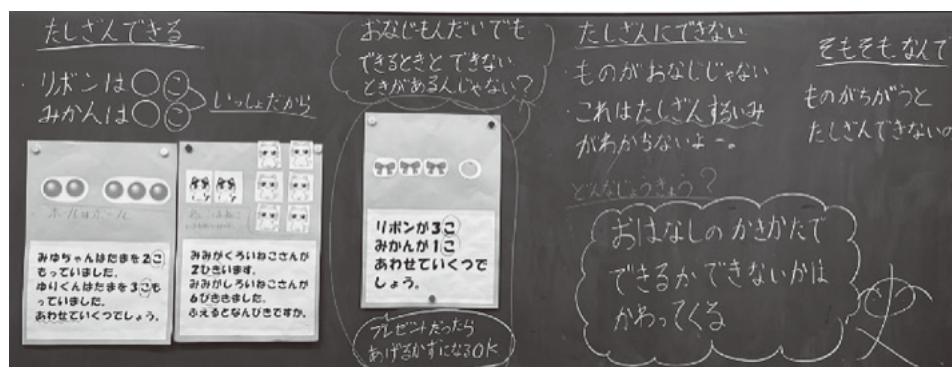 たしざんできる
・リボンは○こ
みかんは○こ
いっしょだから
ボールはボール
みゆちゃんはたまを2こ
もっていました。
ゆりくんはたまを3こも
っていました。
あわせていくつでしょう。
みみがくろいねこさんが
2ひきいます。
みみがしろいねこさんが
6ぴききました。
ふえるとなんびきですか。
おなじもんだいでも
できるときとできない
ときがあるんじゃない?
リボンが3こ
みかんが1こ
あわせていくつで
しょう。
プレゼントだったら
あげるかずになるOK
たしざんにできない
・ものがおなじじゃない
・これはたしざんするいみ
がわからないよー。
どんなじょうきょう?
おはなしのかきかたで
できるかできないかは
かわってくる
そもそもなんで
ものがちがうと
たしざんできない